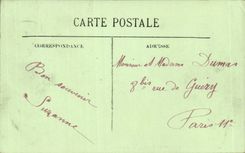 CARTE POSTALE
CORRESPONDANCE
ADRESSE
Bon souvenir
Suzanne
Monsieur et Madame Dumas
9 bis rue de
Paris 11e